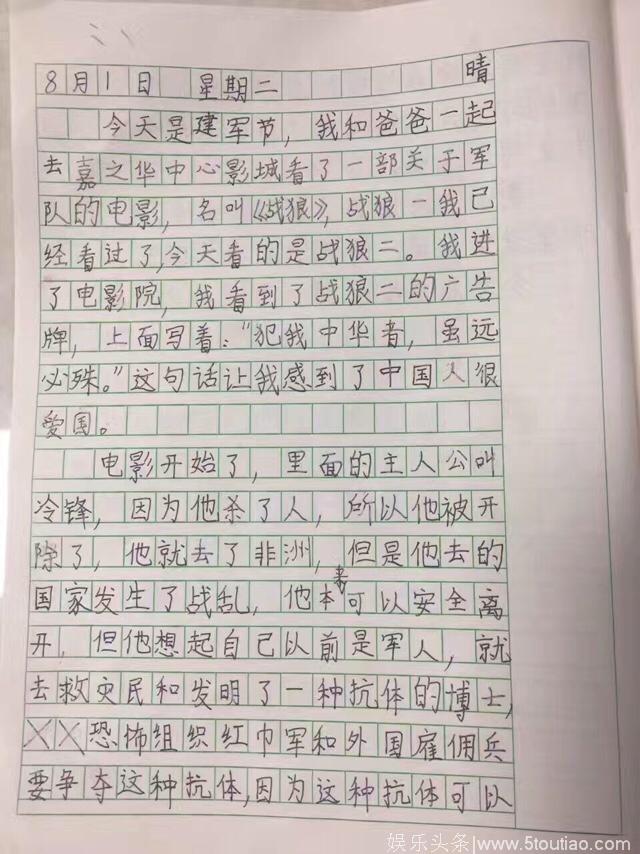 8月1日 星期二 晴
今天是建军节，我和爸爸一起
去嘉之华中心影城看了一部关于军
队的电影，名叫《战狼》，战狼一我已
经看过了，今天看的是战狼二。我进
了电影院，我看到了战狼二的广告
牌，上面写着：“犯我中华者，虽远
必殊。”这句话让我感到了中国人很
爱国。
电影开始了，里面的主人公叫
冷锋，因为他杀了人，所以他被开
除了，他就去了非洲，但是他去的
国家发生了战乱，他本来可以安全离
开，但他想起自己以前是军人，就
去救灾民和发明了一种抗体的博士，
恐怖组织红巾军和外国雇佣兵
要争夺这种抗体，因为这种抗体可以
娱乐头条 www.5toutiao.com